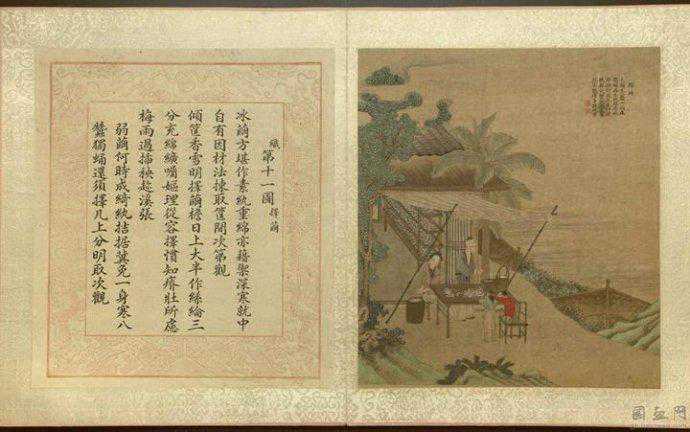 織 第十一圖 擇繭
冰繭方堪作素紈重綿亦藉禦深寒就中
自有因材法揀取筐間次第觀
傾筐香雪明擇繭檐日上大半作絲綸三
分充綿纊嗔嫗理從容擇慣知瘠壯所處
梅雨過插秧趁溪漲
弱繭何時成綺紈拮据冀免一身寒八
蠶獨蛹還須擇几上分明取次觀
国画网